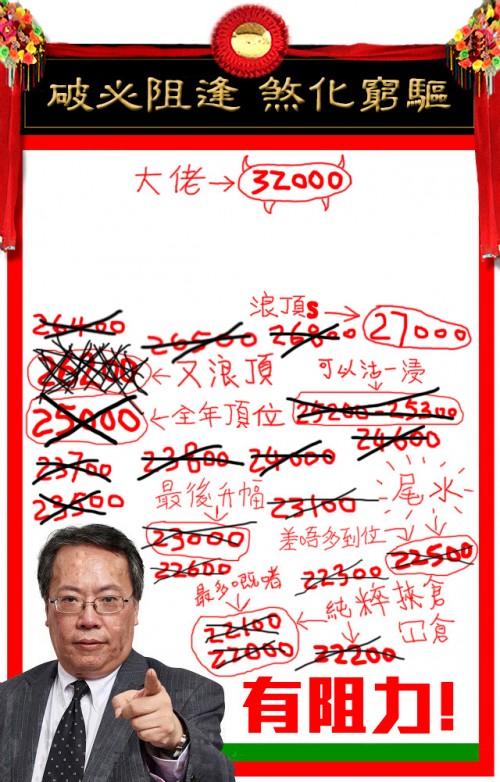 驅窮化煞 逢阻必破
大佬→32000
浪頂s→27000
26400
26500
26800
←又浪頂
可以沽一浸
25000←全年頂位
25200-25300
24600
23700
23800
24000
23500
最後升幅
23100
尾水
23000
差唔多到位→22500
22600
22300
最多嘅啫
純粹挾倉
冚倉
22100
22000
22200
有阻力!